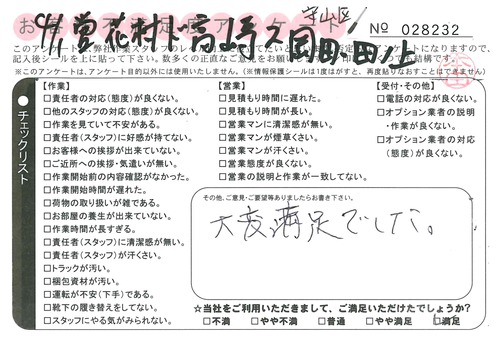 守山区
№ 028232
記入後シールを上に貼って下さい。数多くの正直なご意見をお願いします。
(※このアンケートは、アンケート目的以外には使用いたしません。)(※情報保護シールは1度がはすと、再度貼りなおすことはできません)
チェックリスト
【作業】
□責任者の対応(態度)が良くない。
□他のスタッフの対応(態度)が良くない。
□作業を見ていて不安がある。
□責任者(スタッフ)に好感が持てない。
□お客様への挨拶が出来ていない。
□ご近所への挨拶・気遣いが無い。
□作業開始前の内容確認がなかった。
□作業開始時間が遅れた。
□荷物の取り扱いが雑である。
□お部屋の養生が出来ていない。
□作業時間が長すぎる。
□責任者(スタッフ)に清潔感が無い。
□責任者(スタッフ)が汗くさい。
□トラックが汚い。
□梱包資材が汚い。
□運転が不安(下手)である。
□靴下の履き替えをしてない。
□スタッフにやる気がみられない。
【営業】
□見積もり時間に遅れた。
□見積もり時間が長い。
□営業マンに清潔感が無い。
□営業マンが煙草くさい。
□営業マンが汗くさい。
□営業態度が良くない。
□営業の説明と作業が一致してない。
【受付・その他】
□電話の対応が良くない。
□オプション業者の説明
・作業が良くない。
□オプション業者の対応
(態度)が良くない。
その他、ご意見・ご要望等ありましたらお書き下さい。
大変満足でした。
☆当社をご利用いただきまして、ご満足いただけたでしょうか?
□不満 □やや不満 □普通 □やや満足 □満足